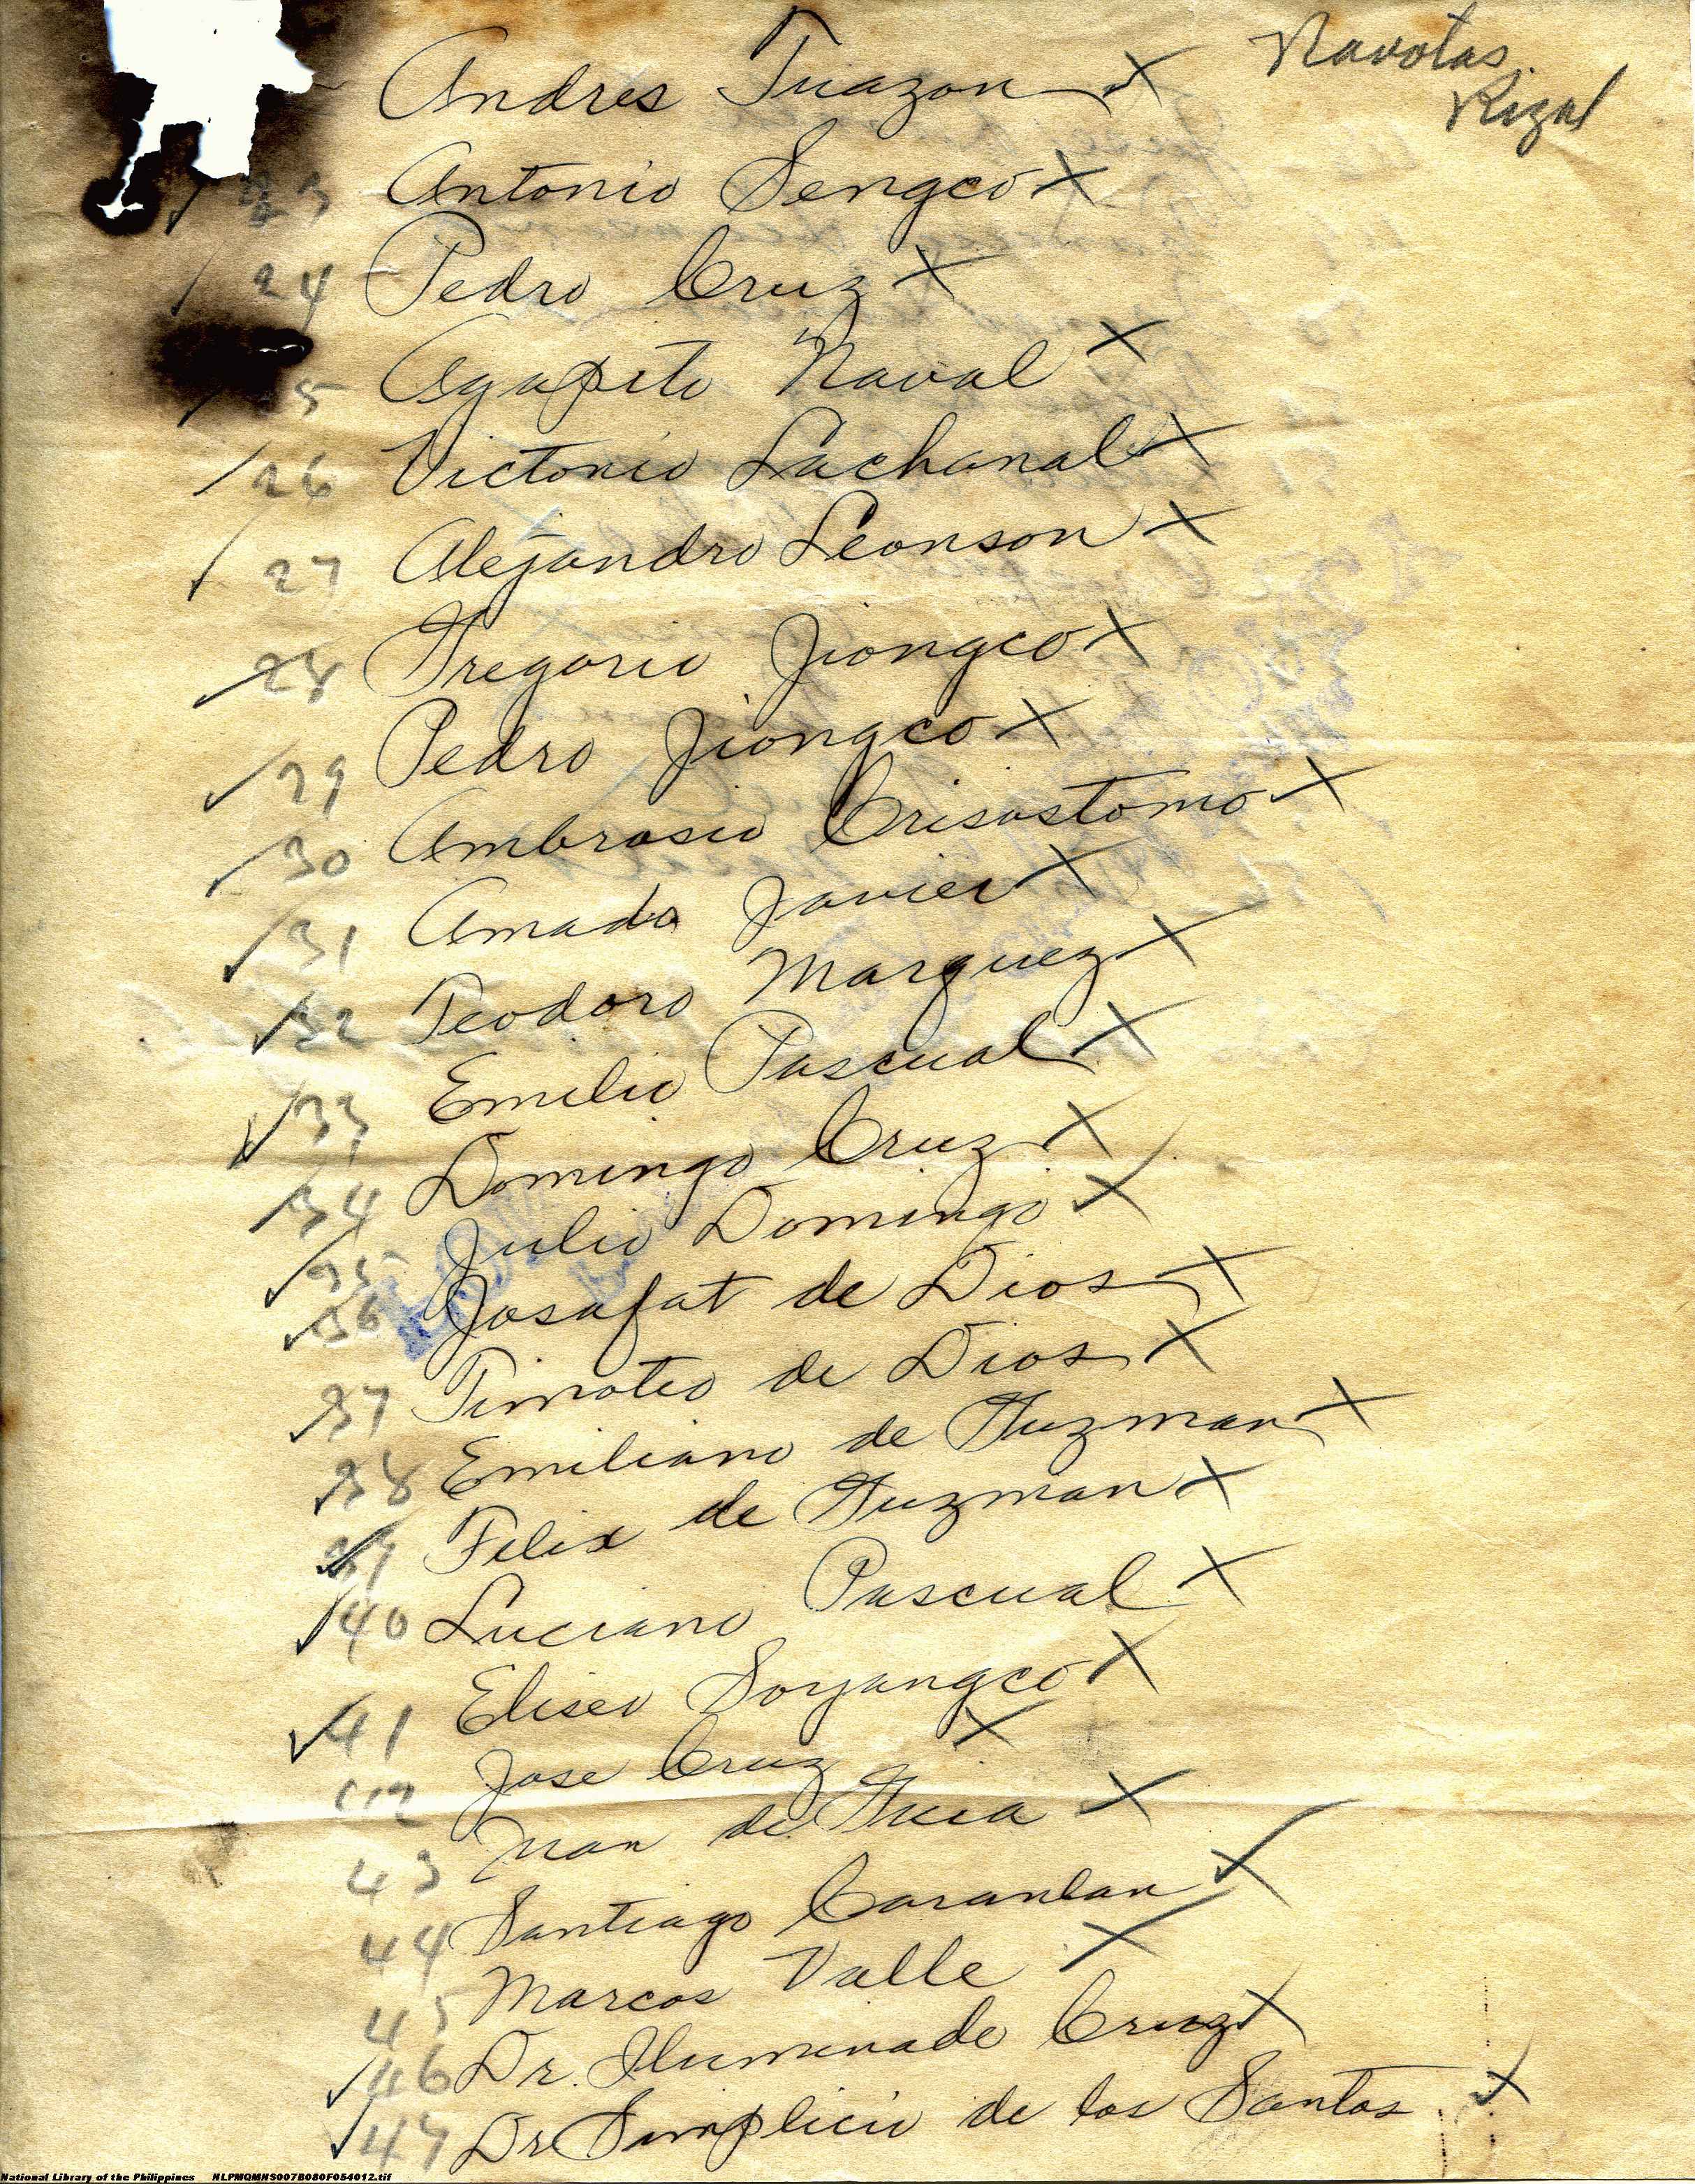 Navotas
Rizal
Andres Tuazon x
23 Antonio Sengco x
24 Pedro Cruz x
25 Agapito Naval x
26 Victorio Lachanal x
27 Alejandro Leonson x
28 Gregorio Jiongco x
29 Pedro Jiongco x
30 Ambrosio Crisostomo x
31 Amado Javier x
32 Teodoro Marquez x
33 Emilio Pascual x
34 Domingo Cruz x
35 Julio Domingo x
36 Josafat de Dios x
37 Timoteo de Dios x
38 Emiliano de Guzman x
39 Felix de Guzman x
40 Luciano Pascual x
41 Eliseo Soyangco x
42 Jose Cruz x
43 Juan de Guia x
44 Santiago Caranlan x
45 Marcos Valle x
46 Dr. Iluminado Cruz x
47 Dr Simplicio de los Santos x
National Library of the Philippines NLPMQMNS007B080F054012.tif